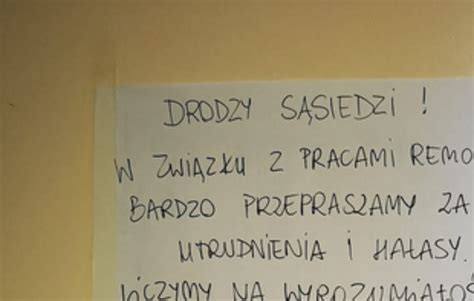 DRODZY SĄSIEDZI !
W ZWIĄZKU Z PRACAMI REMO
BARDZO PRZEPRASZAMY ZA
UTRUDNIENIA I HAŁASY.
LICZYMY NA WYROZUMIAŁOŚ